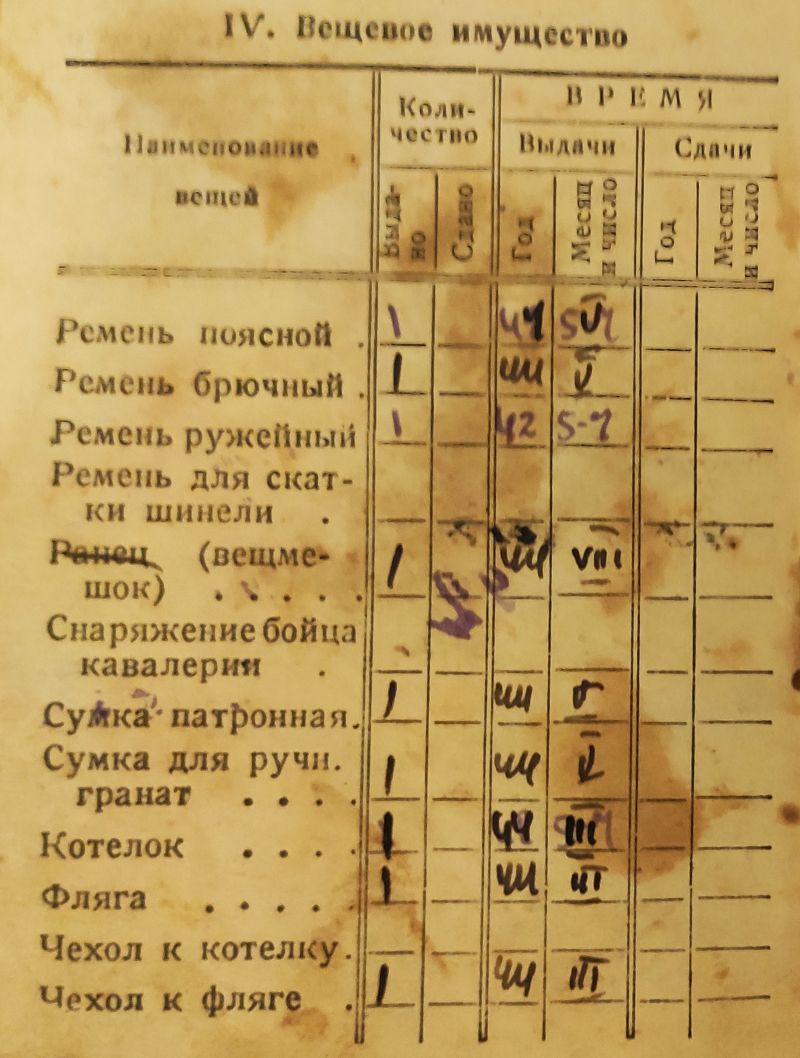 IV. Вещевое имущество
Наименование вещей
Коли-
чество
ВРЕМЯ
Выдачи
Сдачи
Выда-
но
Сдано
Год
Месяц
и число
Год
Месяц
и число
Ремень поясной . 1 44 V
Ремень брючный . 1 44 V
Ремень ружейный 1 42 5-7
Ремень для скат-
ки шинели .
Ранец (вещме-
шок) . . . . . 1 44 VIII
Снаряжение бойца
кавалерии .
Сумка патронная. 1 44 V
Сумка для ручн.
гранат . . . . 1 44 V
Котелок . . . . 1 44 III
Фляга . . . . . 1 44 III
Чехол к котелку.
Чехол к фляге . 1 44 III